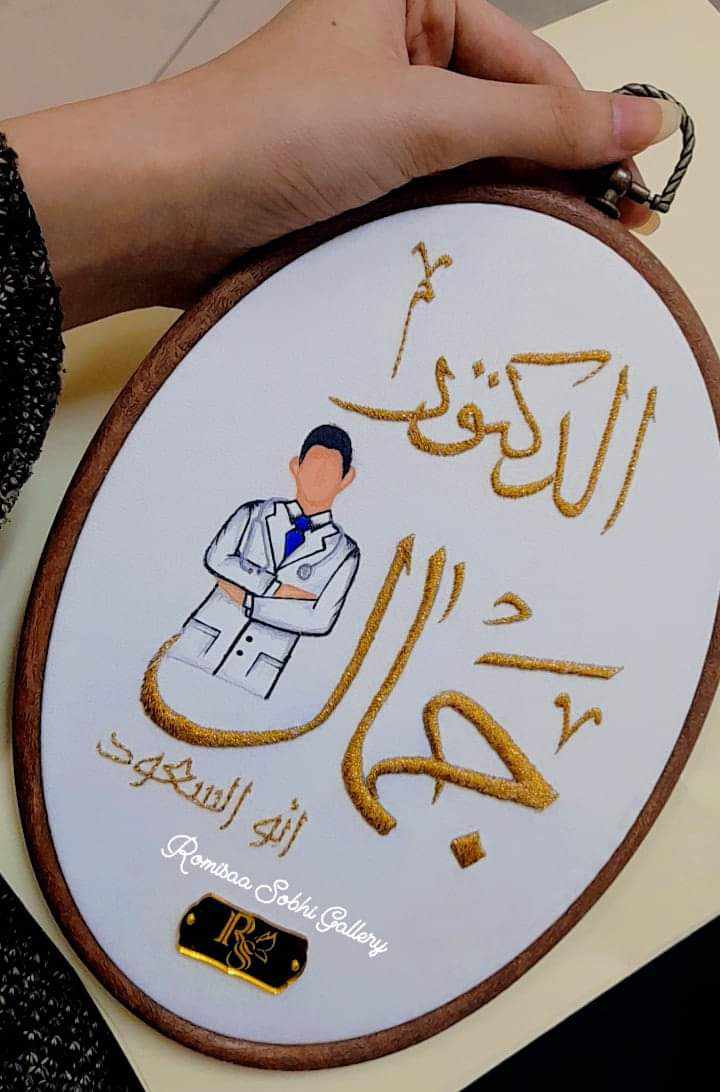 الدكتور
جمال
ابو السعود
Romisaa Sobhi Gallery
RS